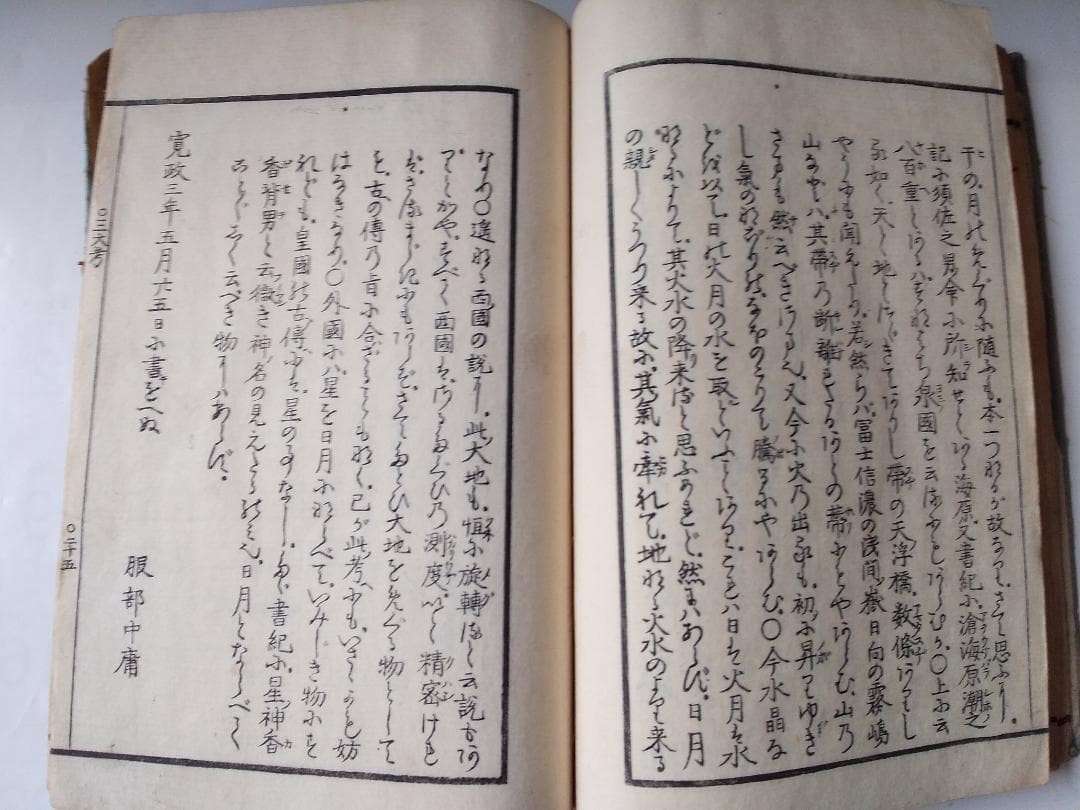 干の.月のめぐるに随ふも.本一つなるが故なり.さて思ふに.
記に須佐之男命に所知せとある海原.又書紀に滄海原潮之
八百重とあるは.すなはち泉國を云なるにとあらむか.〇上に云
る如く.天と地とつゞきてありし帶の天浮橋.數條ありし
やうにも聞えたり.若然らば.冨士信濃の浅間嶽日向の霧嶋
山などは.其帶の断離れたるあとの蔕にもやあらむ.山の
さまも然云べきさまなり.又今に火の出るも.初に昇りゆき
し氣のなごりのなほのこりて騰るにやあらむ.〇今水晶な
どを以て.日の火月の水を取といふことあり.これは日は火月は水
なるによりて.其火水の降来ると思ふめれど.然にはあらず.日月
の親しくうつり来る故に.其氣に牽れて.地なる火水のより来る
なり〇遥なる西國の説に.此大地も.恒に旋轉ると云説もあり
てとかや.すべて西國は.さるたぐひの測度いと精密けれ
ば.さるまじきにもあらず.さてたとひ大地をめぐる物として
も.古の傳の旨に合ざることも無く.己が此考へにも.いさゝかも妨
はなきなり.〇外國には星を日月にならべて.いみじき物にす
れども.皇國の古傳には.星の事なし.たゞ書紀に.星神香
香背男と云微き神名の見えたるのみ.日月とならべて
ことごとしく云べき物にはあらず.
寛政三年五月六五日に書をへぬ
服部中庸
〇三大考
〇二十五